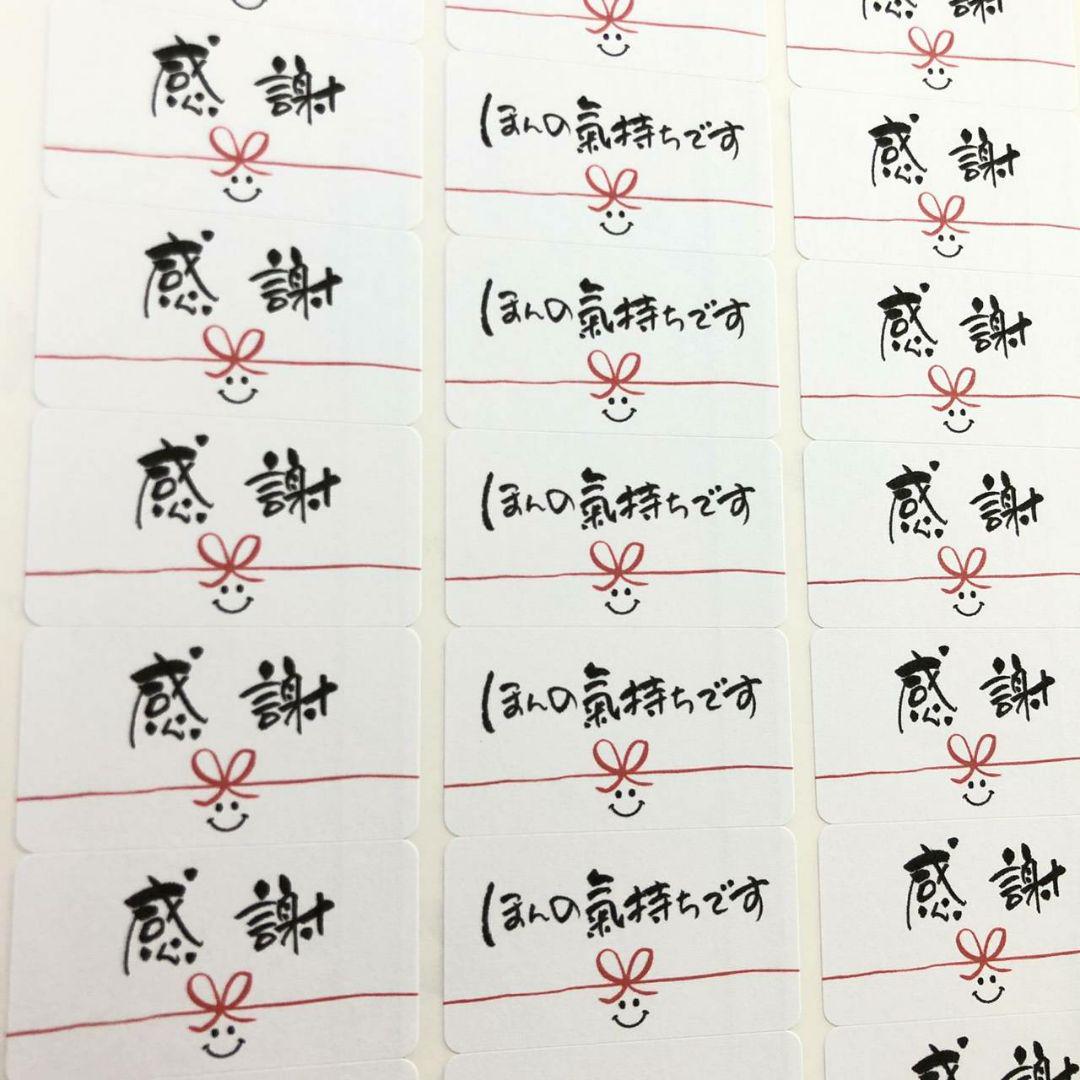 感謝
ほんの氣持ちです
感謝
感謝
ほんの氣持ちです
感謝
感謝
ほんの氣持ちです
感謝
感謝
ほんの氣持ちです
感謝
感謝
ほんの氣持ちです
感謝
感謝
感謝